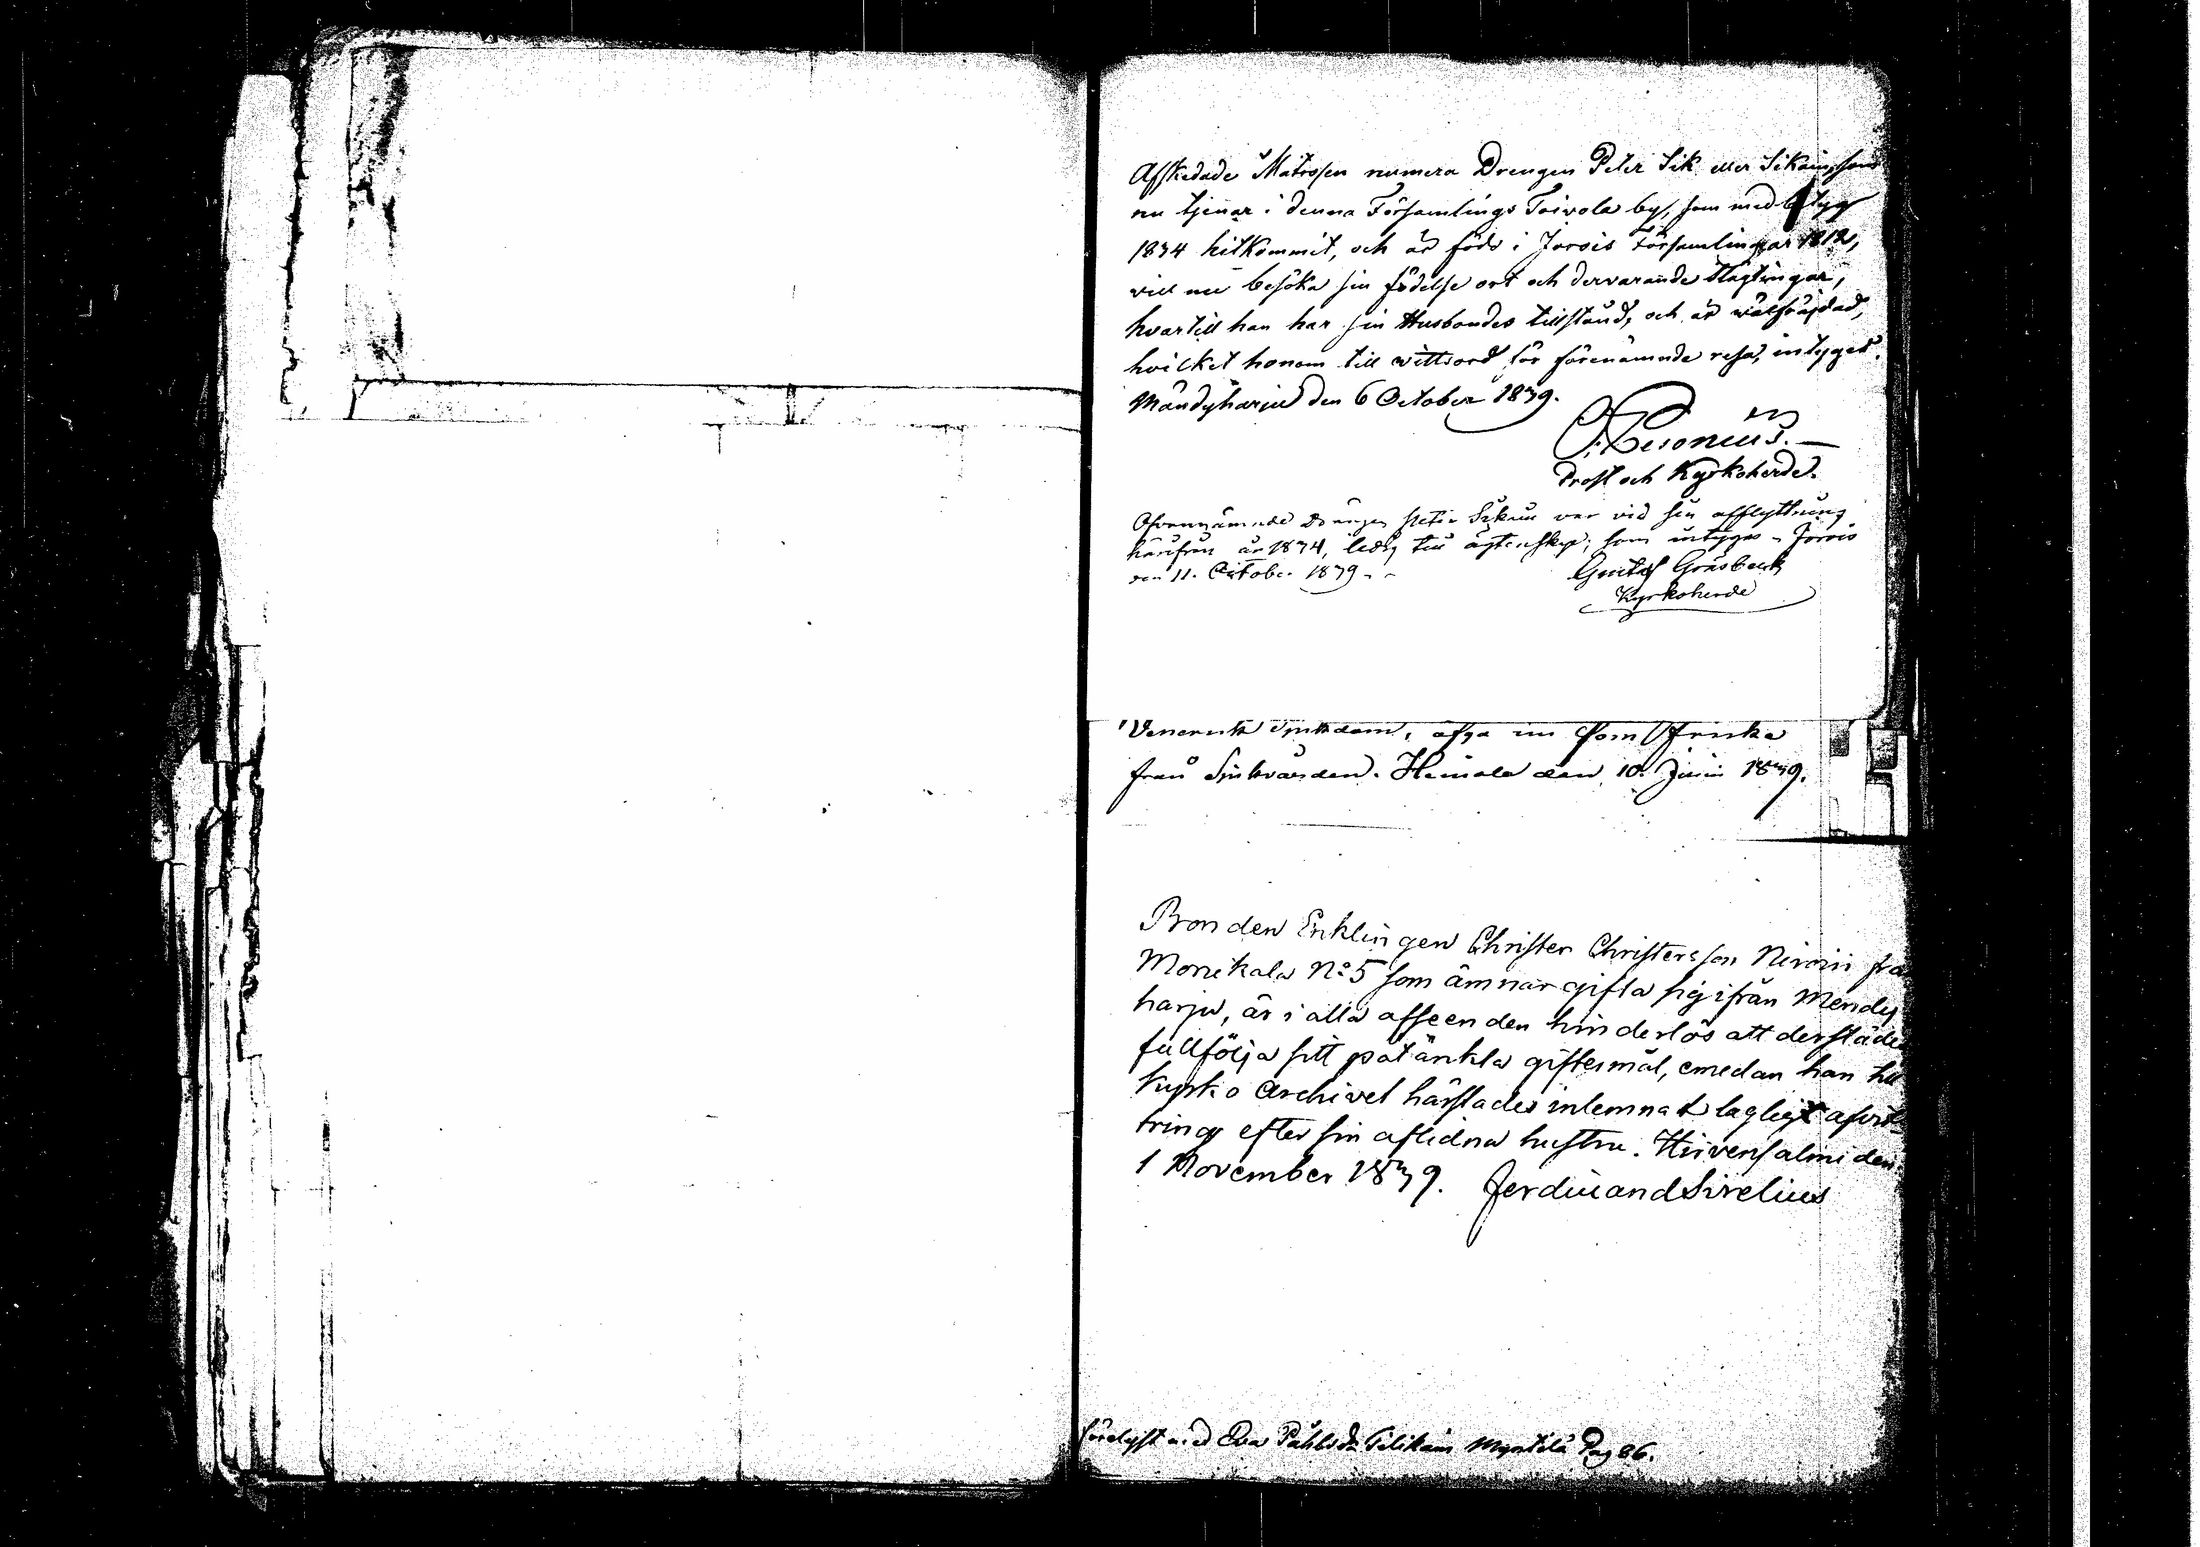 Afskedade Matrosen numera Drengen Peter Sik eller Sikain, som
nu tjenar i denna Församlings Toivola by, som med betyg
1834 hitkommit, och är född i Jorois Församling år 1812,
vill nu besöka sin födelse ort och dervarande Slägtingar,
hvartill han har sin Husbondes tillstånd, och är wälfräjdad,
hvilket honom till wittsord för förenämnde resa, intygas.
Mändyharju den 6 October 1839.
Cesonius.
Prost och Kyrkoherde.
Ofvannämnde Drängen Petter Sikain var vid sin afflyttning
härifrån år 1834, ledig till äktenskap; som intygas. Jorois
den 11. October 1839.
Gustaf Gråsbeck
Kyrkoherde
Venerisk Sjukdom, afgå nu som friska
från Sjukvården. Heinola den 10. Junii 1839.
Bonden Enklingen Christer Christersson Niroin frå
Monikala No 5 som ämnar gifta sig ifrån Mendy
harju, är i alla afseenden hinderlös att derstädes
fullfölja sitt påtänkta giftermål, emedan han till
Kyrko Archivet härstädes inlemnat lagligt afvit-
tring efter sin aflidna hustru. Hirvensalmi den
1 November 1839. Ferdinand Sirelius
förelyst med Eva Påhlsdr Pilikain Myntilä Pag 86.